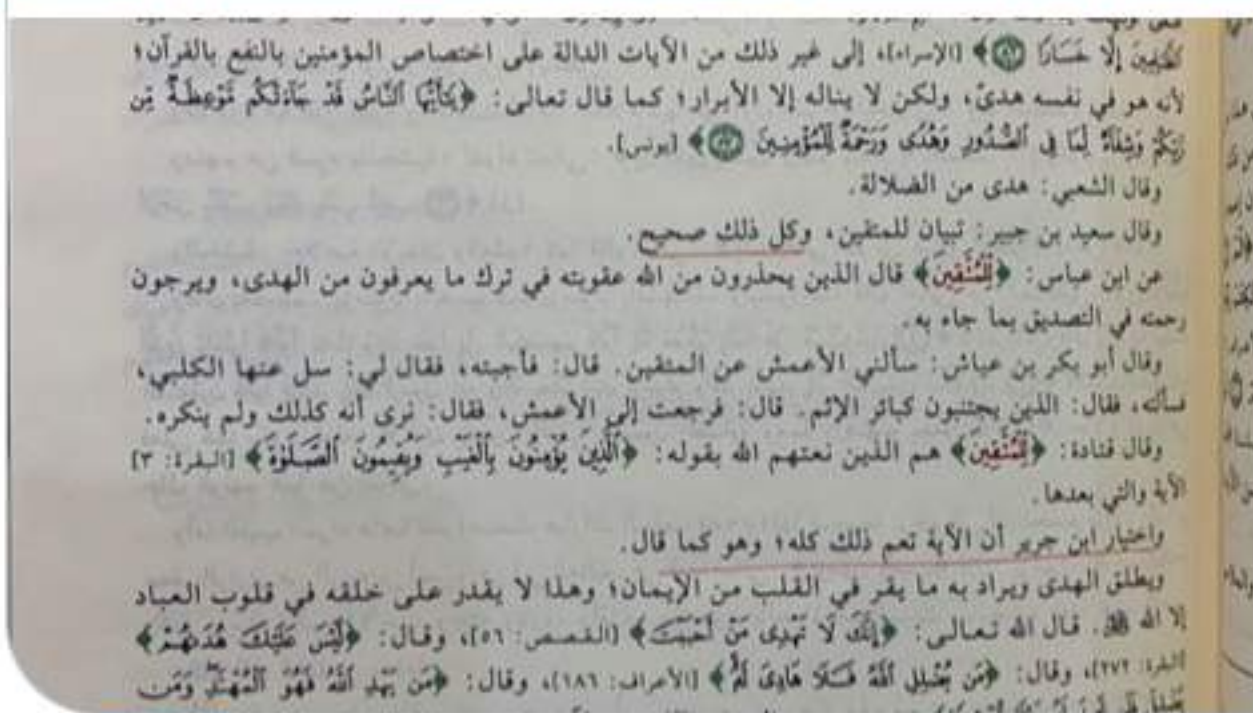 الظَّالِمِينَ إِلَّا خَسَارًا ﴿٨٢﴾ [الإسراء]، إلى غير ذلك من الآيات الدالة على اختصاص المؤمنين بالنفع بالقرآن؛
لأنه هو في نفسه هدىً، ولكن لا يناله إلا الأبرار؛ كما قال تعالى: ﴿يَتَأَيُّهَا ٱلنَّاسُ قَدْ جَآءَتْكُم مَّوْعِظَةٌ مِّن
رَّبِّكُمْ وَشِفَآءٌ لِّمَا فِى ٱلصُّدُورِ وَهُدًى وَرَحْمَةٌ لِّلْمُؤْمِنِينَ ﴿٥٧﴾ [يونس].
وقال الشعبي: هدى من الضلالة.
وقال سعيد بن جبير: تبيان للمتقين، وكل ذلك صحيح.
عن ابن عباس: ﴿لِّلْمُتَّقِينَ﴾ قال الذين يحذرون من الله عقوبته في ترك ما يعرفون من الهدى، ويرجون
رحمته في التصديق بما جاء به.
وقال أبو بكر بن عياش: سألني الأعمش عن المتقين. قال: فأجبته، فقال لي: سل عنها الكلبي،
فسألته، فقال: الذين يجتنبون كبائر الإثم. قال: فرجعت إلى الأعمش، فقال: نرى أنه كذلك ولم ينكره.
وقال قتادة: ﴿لِّلْمُتَّقِينَ﴾ هم الذين نعتهم الله بقوله: ﴿ٱلَّذِينَ يُؤْمِنُونَ بِٱلْغَيْبِ وَيُقِيمُونَ ٱلصَّلَوٰةَ﴾ [البقرة: ٣]
الآية والتي بعدها.
واختيار ابن جرير أن الآية تعم ذلك كله؛ وهو كما قال.
ويطلق الهدى ويراد به ما يقر في القلب من الإيمان؛ وهذا لا يقدر على خلقه في قلوب العباد
إلا الله ﷻ. قال الله تعالى: ﴿إِنَّكَ لَا تَهْدِى مَنْ أَحْبَبْتَ﴾ [القصص: ٥٦]، وقال: ﴿لَّيْسَ عَلَيْكَ هُدَىٰهُمْ﴾
[البقرة: ٢٧٢]، وقال: ﴿مَن يُضْلِلِ ٱللَّهُ فَلَا هَادِىَ لَهُۥ﴾ [الأعراف: ١٨٦]، وقال: ﴿مَن يَهْدِ ٱللَّهُ فَهُوَ ٱلْمُهْتَدِ وَمَن